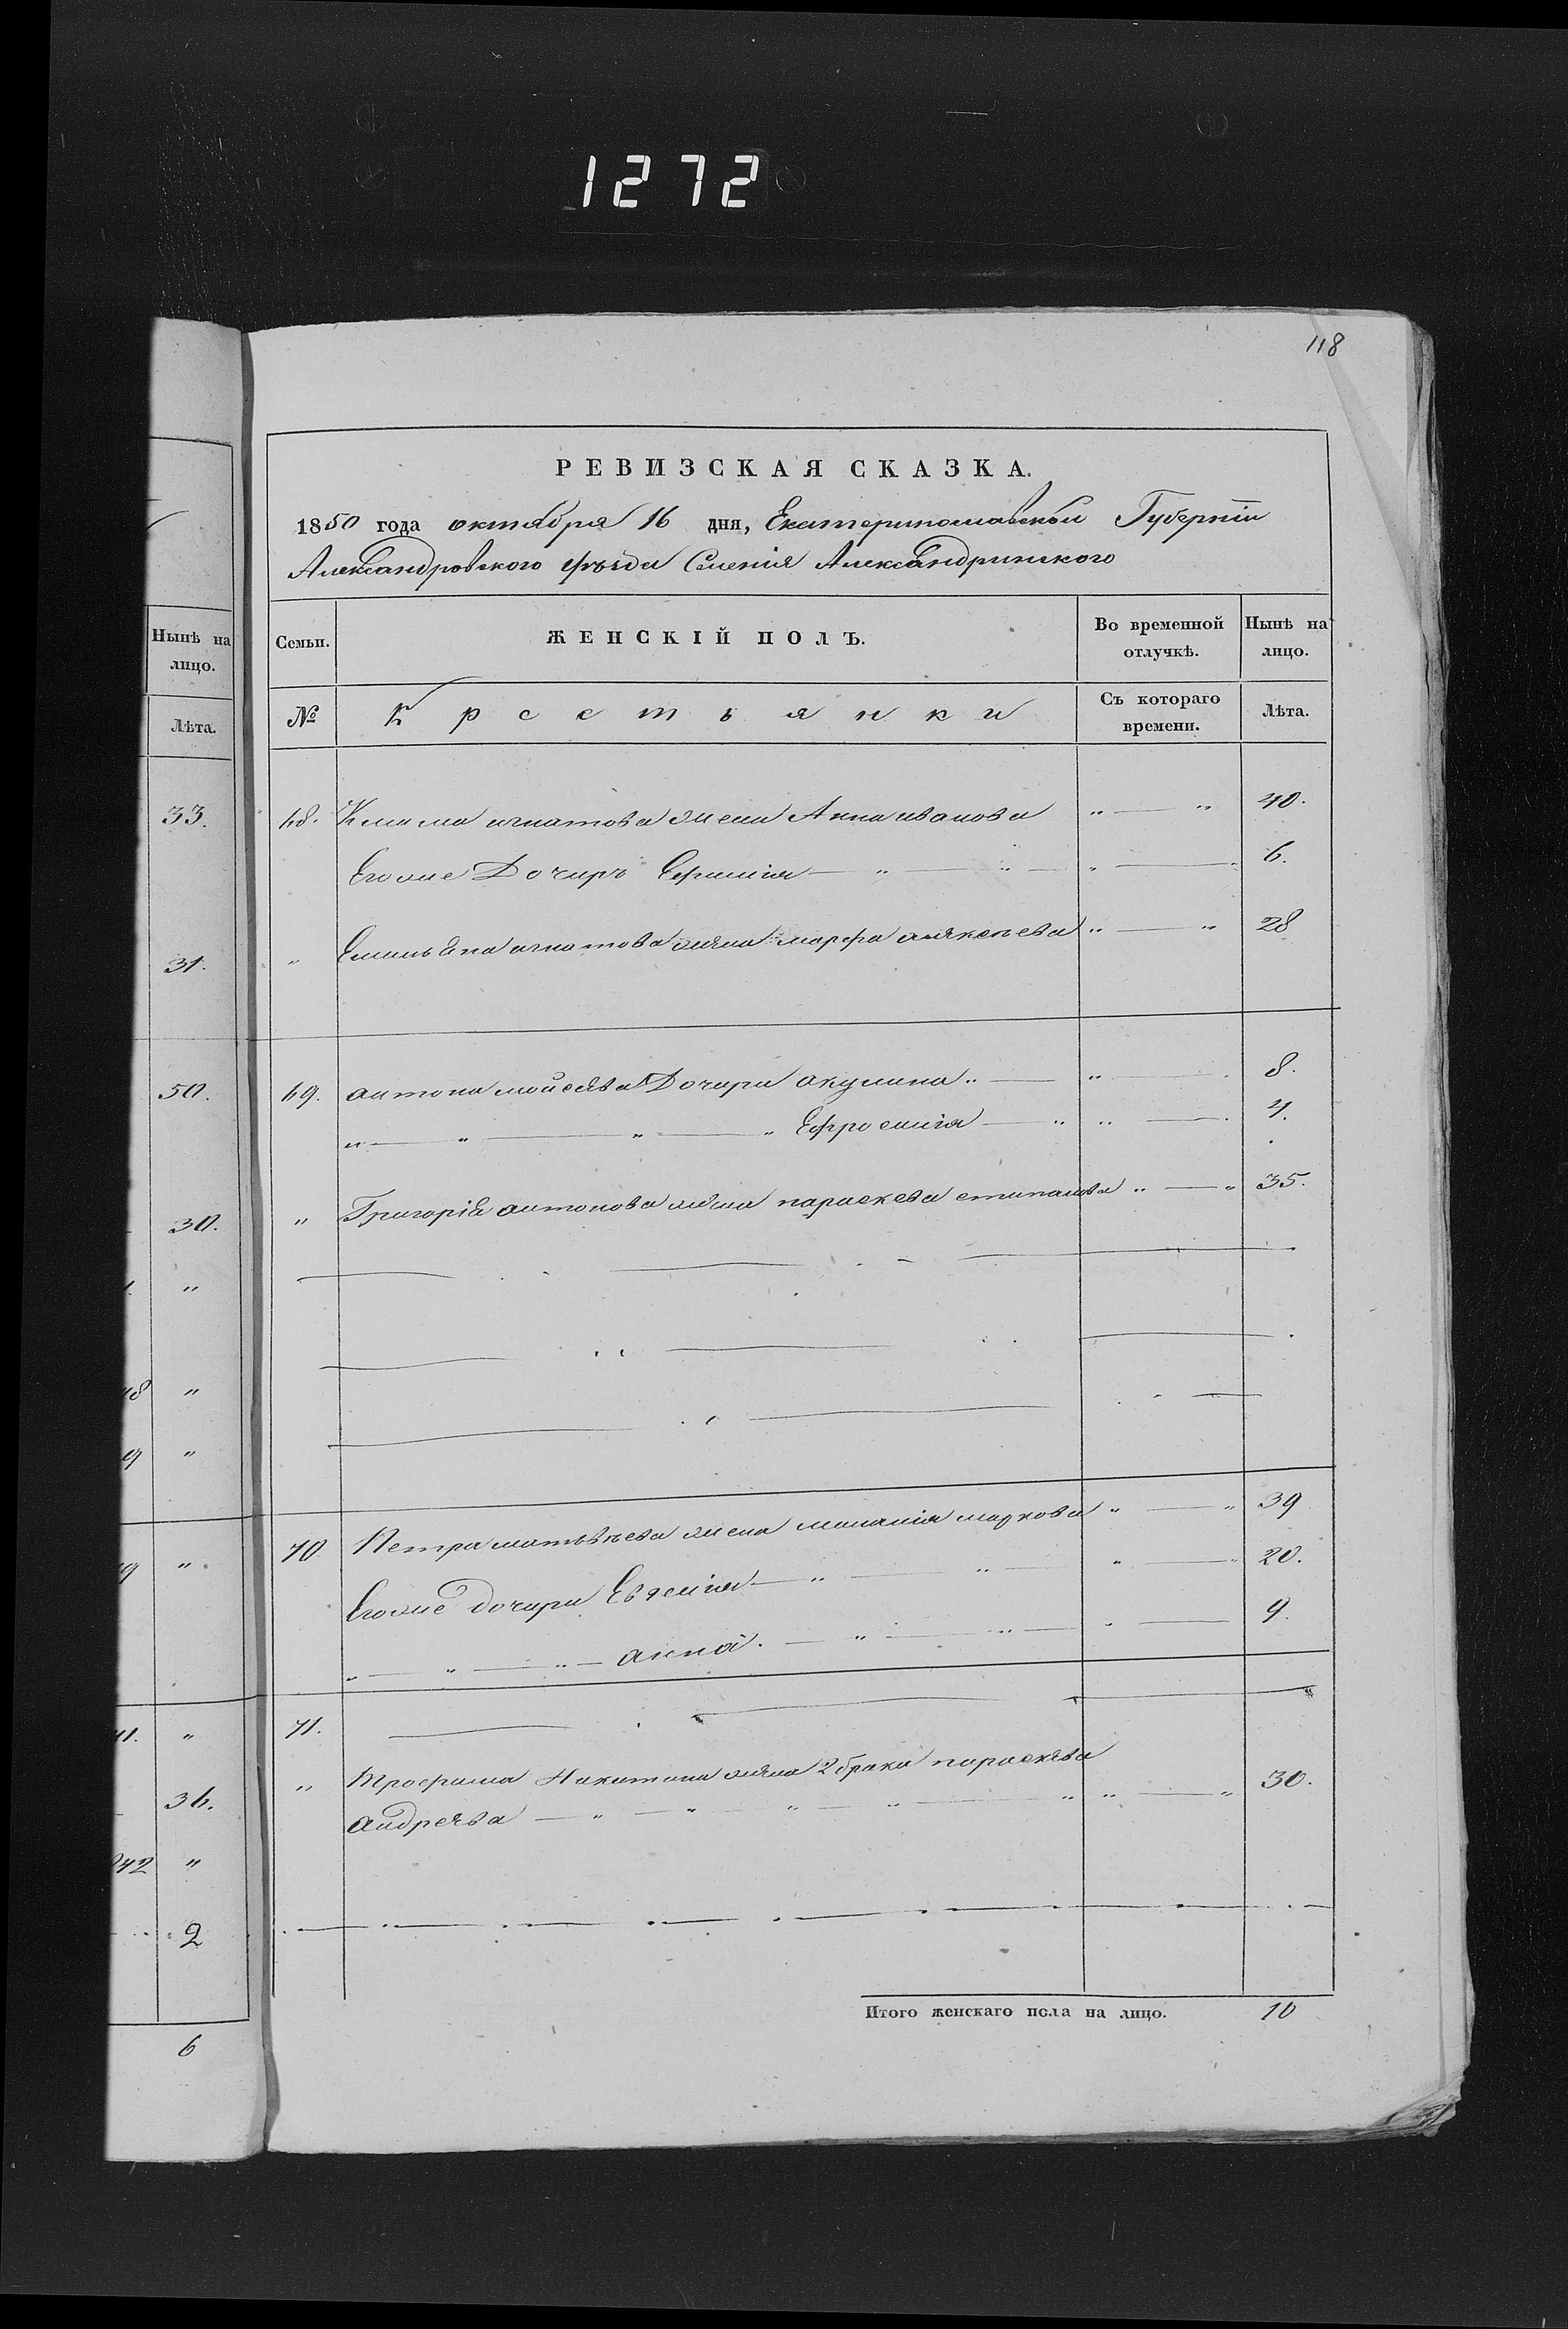 1272
118
РЕВИЗСКАЯ СКАЗКА.
1850 года октября 16 дня, Екатеринославской Губернїи
Александровского уѣзда Селенїя Александринского
Нынѣ на лицо.
Лѣта.
33.
31.
50.
30.
"
18 "
9 "
19 "
41. "
36.
842 "
2
6
Семьи. ЖЕНСКІЙ ПОЛЪ. Во временной отлучкѣ. Нынѣ на лицо.
№ Крестьянки Съ котораго времени. Лѣта.
68. Клима игнатова жена Анна иванова " — " 40.
Егоже Дочирь Ефимія — " — " — " — 6.
" Емильѣна игнатова жѣна марфа алѣксѣева " — " 28
69. антона мойсѣѣва Дочири акулина " — " — 8.
" — " — " — " Ефросинїя — " " — 4.
" Григорїѣ антонова жѣна параскева стипанова " — " 35.
70 Петра матвѣѣва жена маланїя маркова " — " 39
Егоже дочири Евгенїя — " — " — " — 20.
" — " — " — анна. — " — " — " — 9.
71.
" Трофима Никитина жѣна 2 брака параскѣва
андрѣѣва — " — " — " — " — " " — " 30.
Итого женскаго пола на лицо. 10